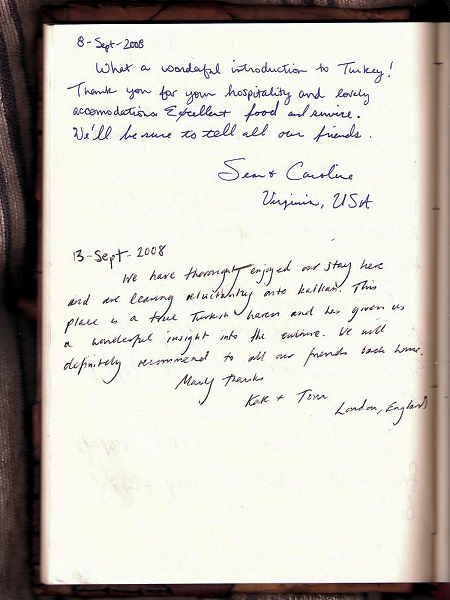 8-Sept-2008
What a wonderful introduction to Turkey!
Thank you for your hospitality and lovely
accomodations. Excellent food and service.
We'll be sure to tell all our friends.
Sean + Caroline
Virginia, USA
13-Sept-2008
We have thoroughly enjoyed our stay here
and are leaving reluctantly onto Kalkan. This
place is a true Turkish haven and has given us
a wonderful insight into the culture. We will
definitely recommend to all our friends back home.
Many thanks
Kate + Tom
London, England